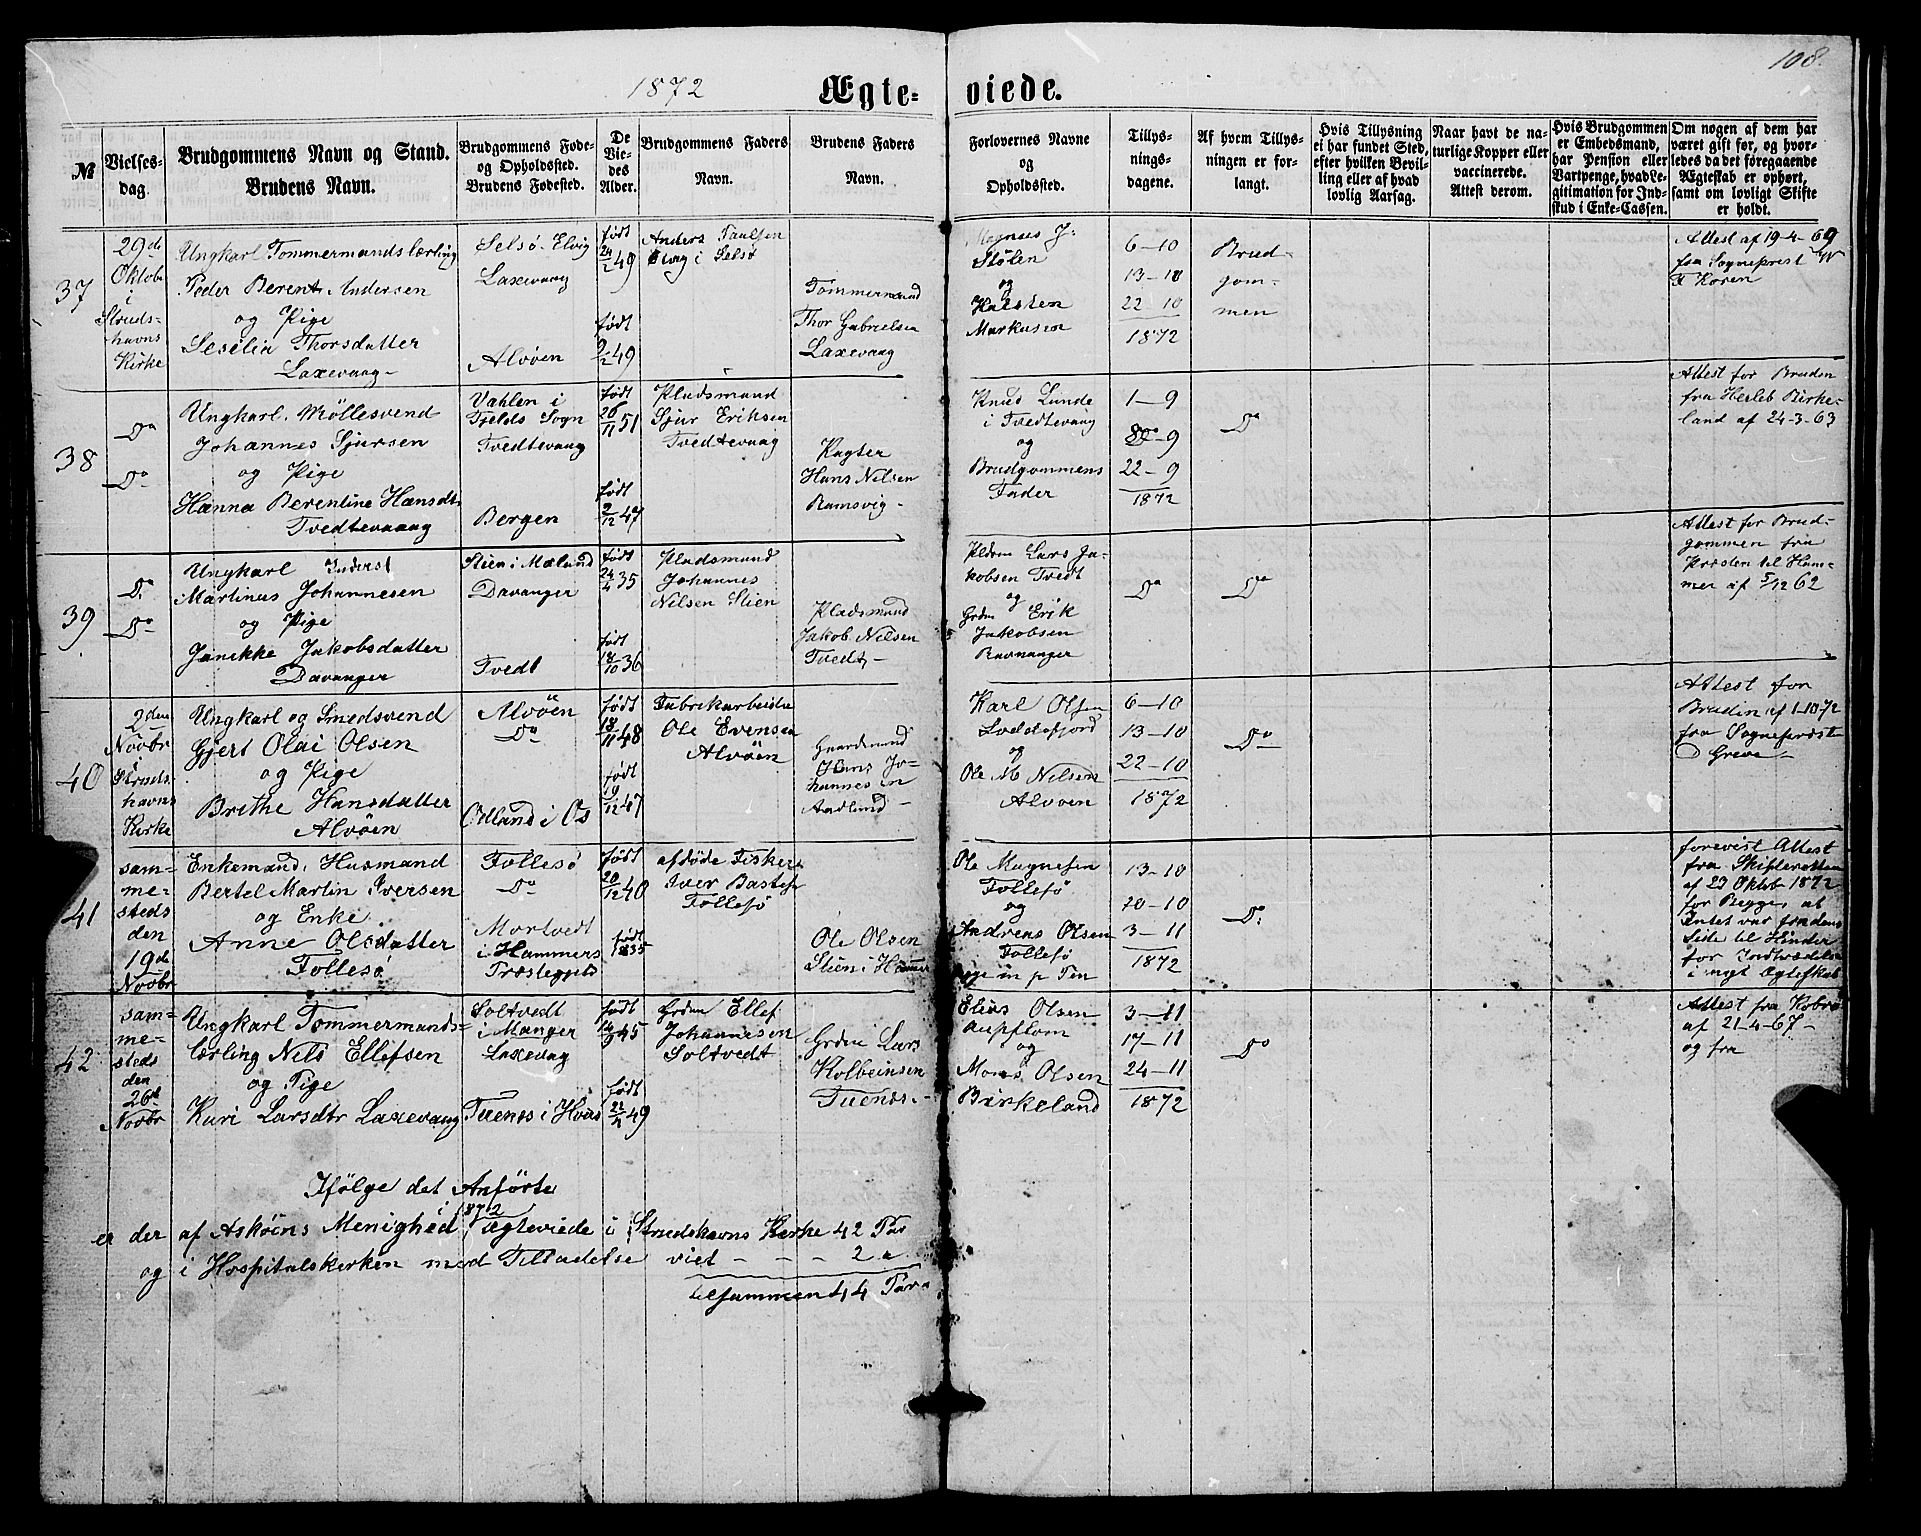 108.
1872 Ægte- viede.
№
Vielses-
dag.
Brudgommens Navn og Stand.
Brudens Navn.
Brudgommens Føde-
og Opholdssted.
Brudens Fødested.
De
Vie-
des
Alder.
Brudgommens Faders
Navn.
Brudens Faders
Navn.
Forlovernes Navne
og
Opholdssted.
Tillys-
nings-
dagene.
Af hvem Tillys-
ningen er for-
langt.
Hvis Tillysning
ei har fundet Sted,
efter hvilken Bevil-
ling eller af hvad
lovlig Aarsag.
Naar havt de na-
turlige Kopper eller
vaccinerede.
Attest derom.
Hvis Brudgommen
er Embedsmand,
har Pension eller
Vartpenge, hvad Le-
gitimation for Ind-
skud i Enke-Cassen.
Om nogen af dem har
været gift før, og hvor-
ledes da det foregaaende
Ægteskab er ophørt,
samt om lovligt Skifte
er holdt.
37
29de
Oktobr
i
Struds-
havns
Kirke
Ungkarl Tømmermandslærling
Peder Berent Andersen
og Pige
Seselia Thorsdatter
Laxevaag-
Selsö. Elvig
Laxevaag
Alvöen
født
24/2 49
født
9/2 49
Anders Paulsen
Elvig i Selsö
Tömmermand
Thor Gabrielsen
Laxevaag
Magnus J:
Stölen
og
Halsten
Markusen
6-10
13-10
22-10
1872
Brud-
gom-
men
Attest af 19-4-69
fra Sogneprest W
F Koren
38
Do
Do
Ungkarl. Möllesvend
Johannes Sjursen
og Pige
Hanna Berentine Hansdt
Tvedtevaag
Vahlen i
Fjelds Sogn
Tvedtevaag
Bergen
født
26/11 51
født
2/12 47
Pladsmand
Sjur Eriksen
Tvedtevaag
Hans Nilsen
Ramsvig-
Knud Lunde
i Tvedtevaag
og
Brudgommens
Fader
1-9
8-9
22-9
1872
Do
Attest for Bruden
fra Herleb Birke-
land af 24-3-63
39
Do
Do
Ungkarl Inderst
Martinus Johannesen
og Pige
Janikke Jakobsdatter
Davanger
Stien i Mæland
Davanger
Tvedt
født
24/4 35
født
18/10 36
Pladsmand
Johannes
Nilsen Stien
Pladsmand
Jakob Nilsen
Tvedt-
Lars Ja-
kobsen Tvedt
og
Grdm Erik
Jakobsen
Ravnanger
Do
Do
Attest for Brud-
gommen fra
Presten til Ham-
mer af 5/12 62
40
2den
Novbr
i
Struds-
havns
Kirke
Ungkarl og Smedsvend
Gjert Olai Olsen
og Pige
Brithe Hansdatter
Alvöen
Alvöen
Do
Ödland i Os
født
18/11 48
født
19/11 47
Fabrikarbeider
Ole Evensen
Alvöen
Gaardmand
Hans Jo-
hannesen
Karl Olsen
Loddefjord
og
Ole M Nilsen
Alvöen
6-10
13-10
22-10
1872
Do
Attest for
Bruden af 1-10-72
fra Sogneprest
D Greve-
41
sam-
me-
steds
den
19de
Novbr
Enkemand. Husmand
Bertel Martin Iversen
og Enke
Anne Olsdatter
Follesö
Follesö
Do
Mortvedt
i Hammers
Præstegjeld
født
20/12 40
født
1835
afdöde Fisker
Iver
Follesö
Ole Olsen
Stien i Hammer
Ole Magnesen
Follesö
og
Andreas Olsen
Follesö
13-10
20-10
3-11
1872
Do
forevist Attest
fra Skifteretten
af 29 Oktobr 1872
for Begge, at
Intet var fra dens
Side til Hinder
for Indtrædelse
i nyt Ægteskab
42
sam-
me-
steds
den
26de
Novbr
Ungkarl Tömmermands-
lærling Nils Ellefsen
og Pige
Kari Larsdtr Laxevaag
Soltvedt
i Manger
Laxevag
Tuenes i
født
14/9 45
født
49
Grdm Ellef
Johannesen
Soltvedt
Grdm Lars
Kolbeinsen
Tuenes.-
Elias Olsen
og
Mons Olsen
Birkeland
3-11
17-11
24-11
1872
Do
Attest fra
af 21-4-67-
og fra
Ifölge det Anförte
er der af Asköens Menighed 1872 Ægteviede i Strudshavns Kirke 42 Par
og i Hospitalskirken med Tilladelse viet - - - 2 "
tilsammen 44 Par